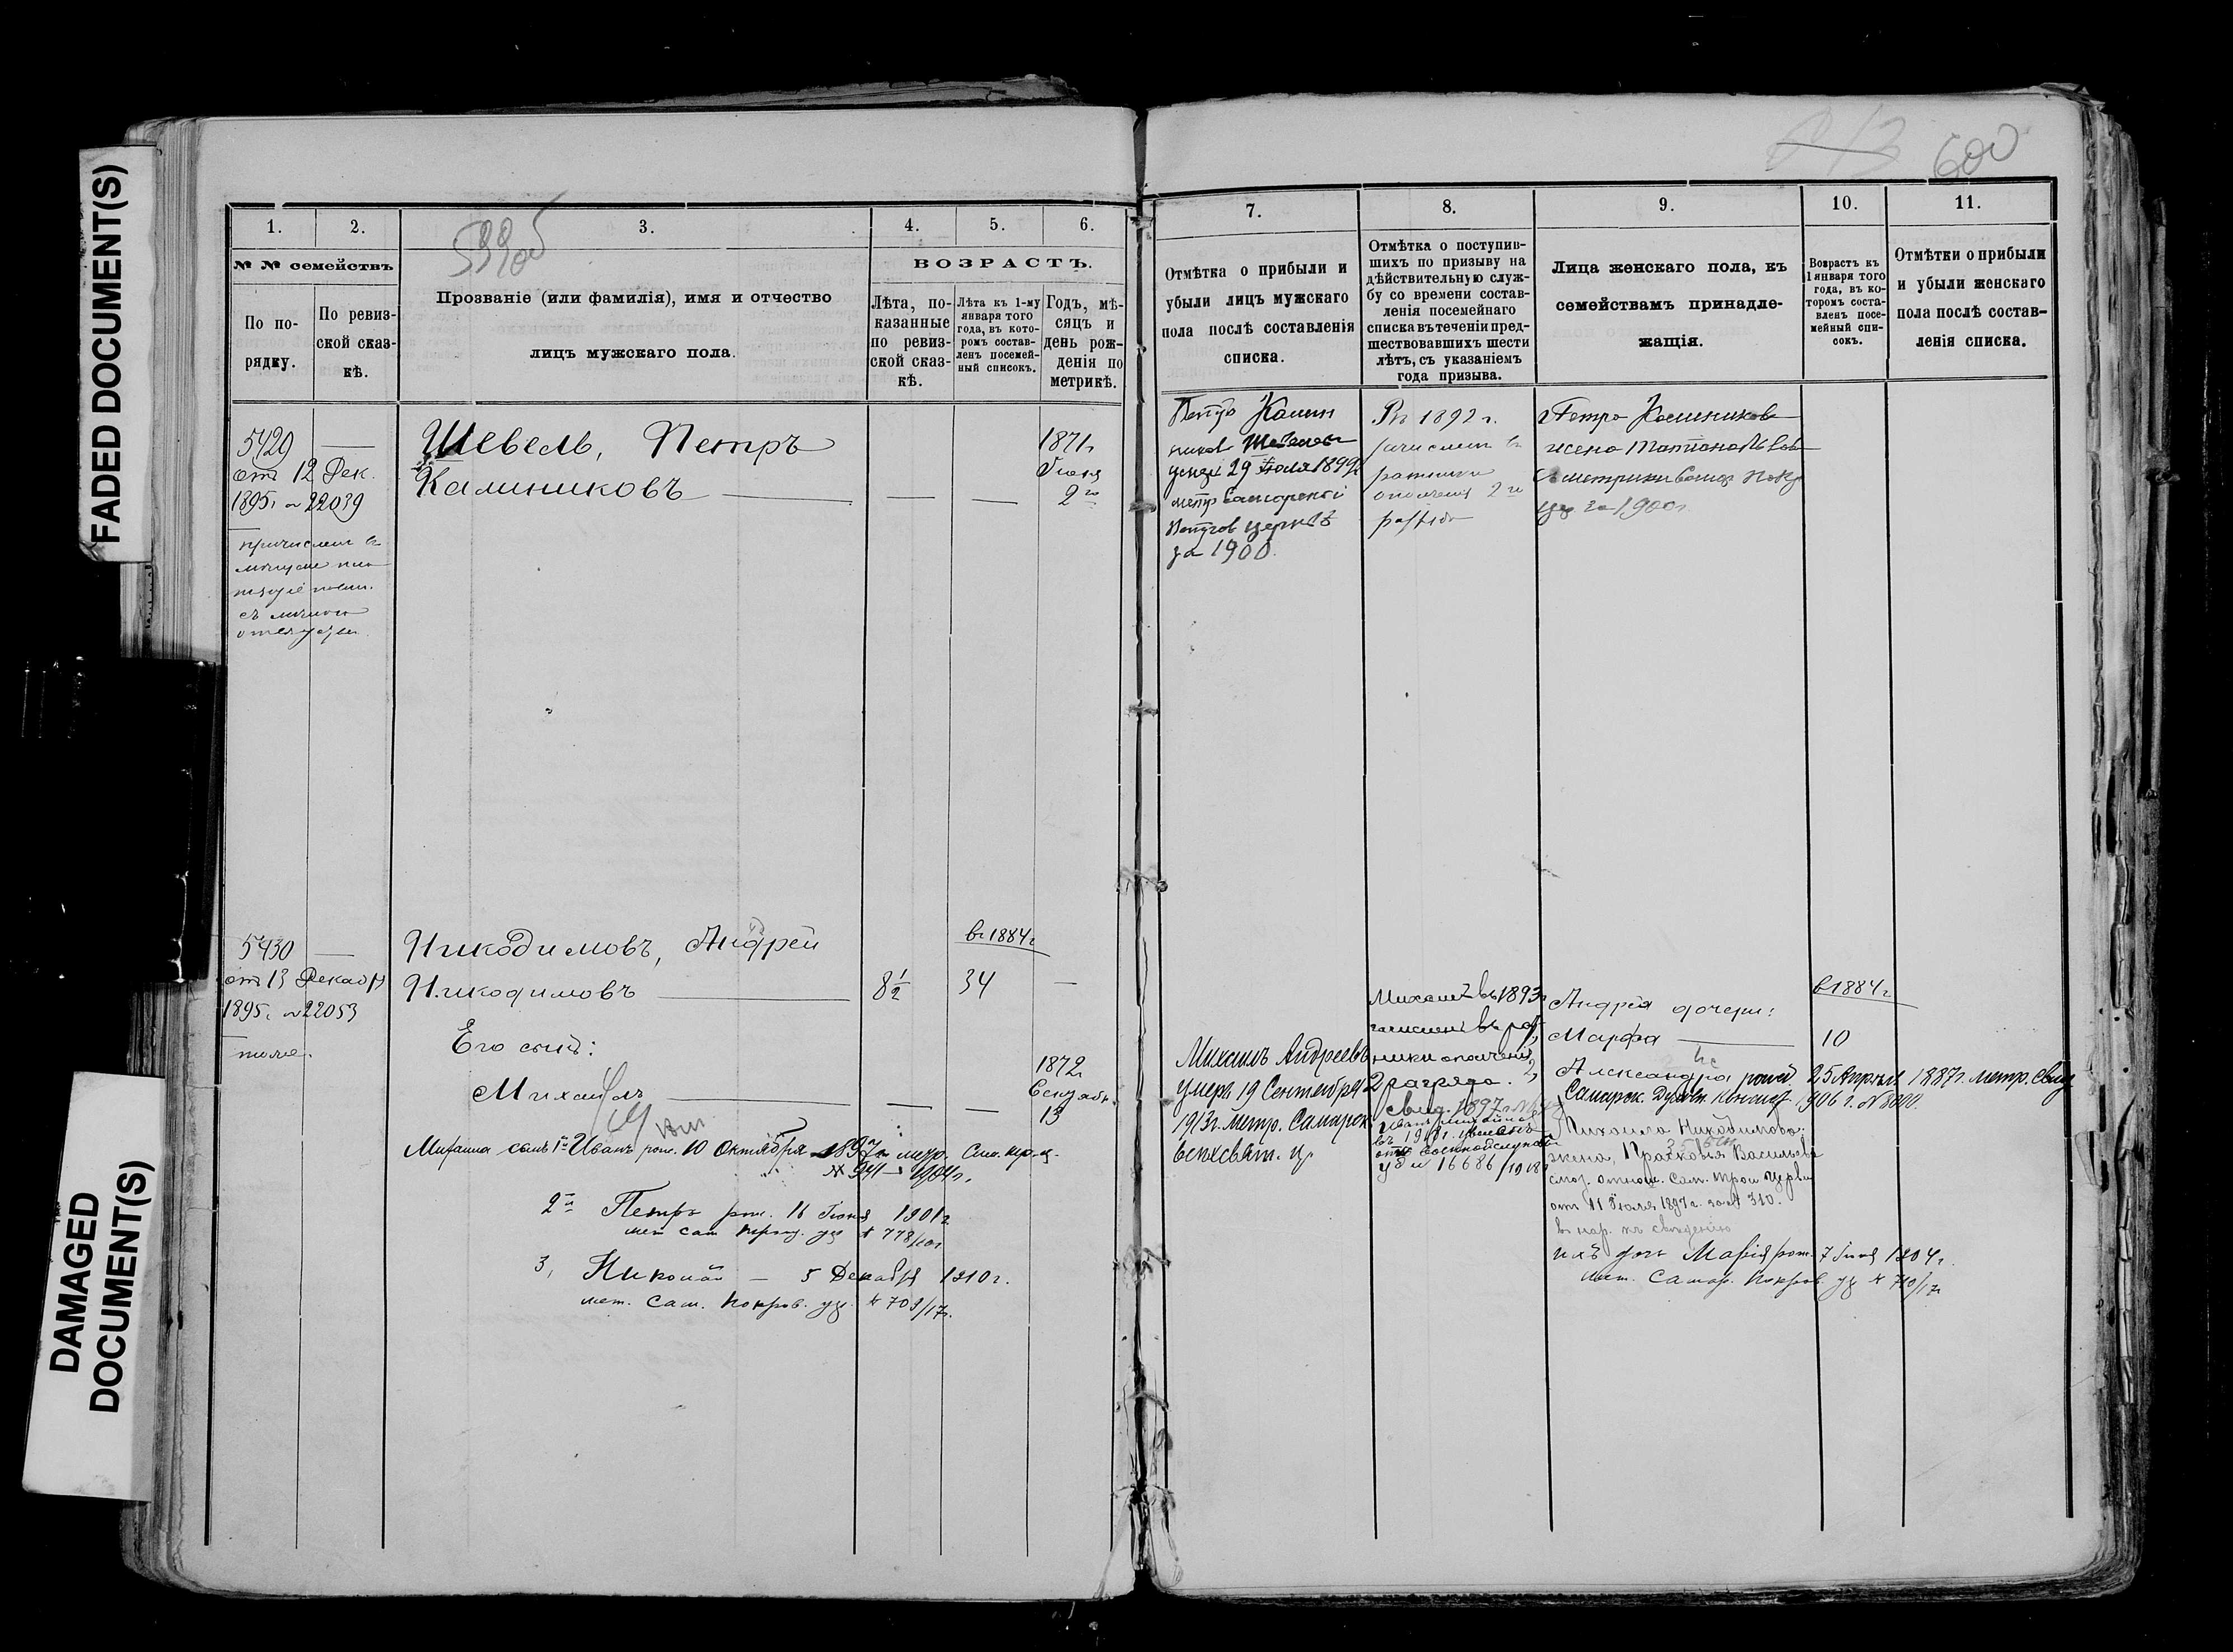 FADED DOCUMENT(S)
DAMAGED
DOCUMENT(S)
59906
1. 2. 3. 4. 5. 6.
№ № семействъ
По по-
рядку.
По ревиз-
ской сказ-
кѣ.
Прозваніе (или фамилія), имя и отчество
лицъ мужскаго пола.
ВОЗРАСТЪ.
Лѣта, по-
казанные
по ревиз-
ской сказ-
кѣ.
Лѣта къ 1-му
января того
года, въ кото-
ромъ состав-
ленъ посемей-
ный списокъ.
Годъ, мѣ-
сяцъ и
день рож-
денія по
метрикѣ.
5429
отъ 12 Дек.
1895 г. № 22039
Шевель, Петръ
Калиниковъ
1871 г
Іюня
2го
5430
от 13 Декабр
1895 г. № 22053
тоже.
Никодимовъ, Андрей
Никодимовъ 8½
в 1884 г
34
Его сынъ:
Михаилъ
1872 г
Сентябр.
13
Михаила сынъ 1й Иванъ рож. 10 Октября 1897 г. метр. Сам.
№ 941 1904 г.
2й Петръ рож. 16 Іюня 1901 г
мет Сам № 778
3, Николай — 5 Декабря 1910 г.
мет. Сам. Покров. № 709/17 г.
600
7. 8. 9. 10. 11.
Отмѣтка о прибыли и
убыли лицъ мужскаго
пола послѣ составленія
списка.
Отмѣтка о поступив-
шихъ по призыву на
дѣйствительную служ-
бу со времени состав-
ленія посемейнаго
списка въ теченіи пред-
шествовавшихъ шести
лѣтъ, съ указаніемъ
года призыва.
Лица женскаго пола, къ
семействамъ принадле-
жащія.
Возрастъ къ
1 января того
года, въ ко-
торомъ соста-
вленъ посе-
мейный спи-
сокъ.
Отмѣтки о прибыли
и убыли женскаго
пола послѣ состав-
ленія списка.
Петръ Калин
иковъ Шевель
умеръ 29 Іюля 1899 г
метр Самарской
Петров церкви
за 1900.
Въ 1892 г.
зачисленъ въ
ратники
ополченія 2го
разряда
Петра Калиникова
жена Татьяна
метрики
за 1900 г.
Михаилъ Андреевъ
умеръ 19 Сентября
1913 г. метр. Самарск
всѣхсвят. ц.
Михаилъ въ 1893 г
зачисленъ въ рат
ники ополченія
2 разряда.
Свид. 1897 г.
№ 16686/1918
Андрея дочери:
в 1884 г
1, Марфа 10
2, Александра рожд 25 Апрѣля 1887 г. метр. свид
Самарск. Духовн. Консист 1906 г. №
Михаила Никодимова
жена, Прасковья Васильева
отнош. Сам. Трои церкви
от 11 Іюля 1897 г. за № 310.
ихъ дочь Марія рож. 7 1904 г.
мет. Самар. Покров. ц № 710/17 г